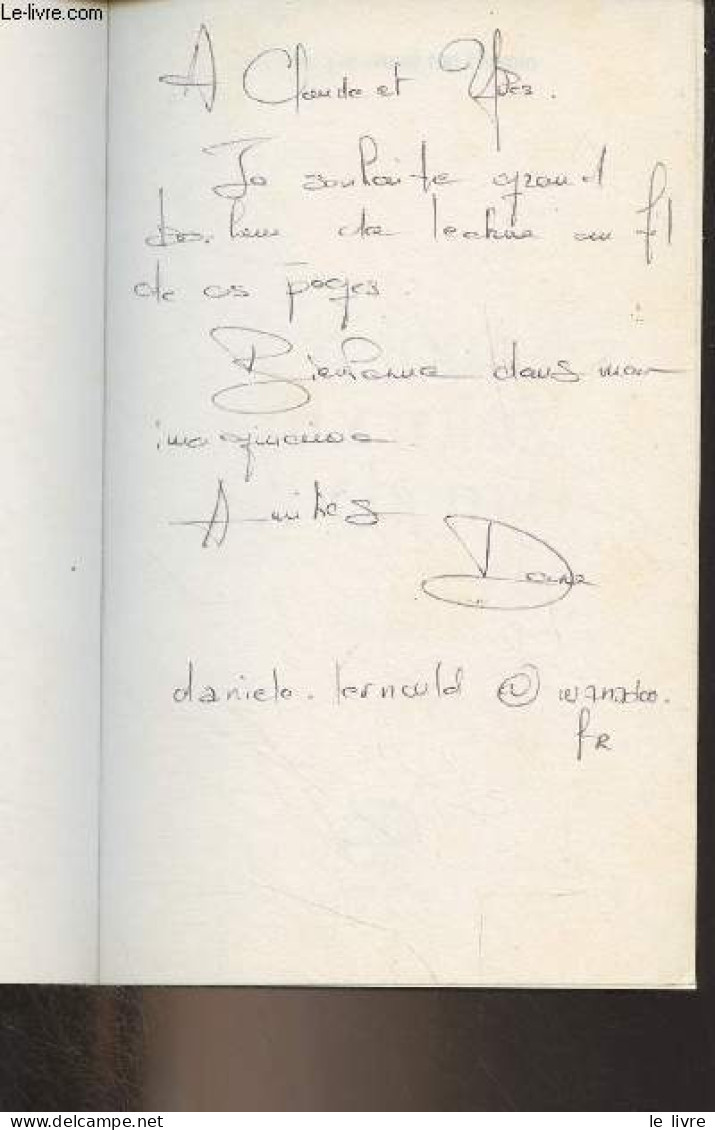 Le-livre.com
A Claude et Yves.
Je souhaite grand
bonheur de lecture au fil
de ces pages.
Bienvenue dans mon
imaginaire
Amitiés
daniele.lernould @ wanadoo.
fR
le livre